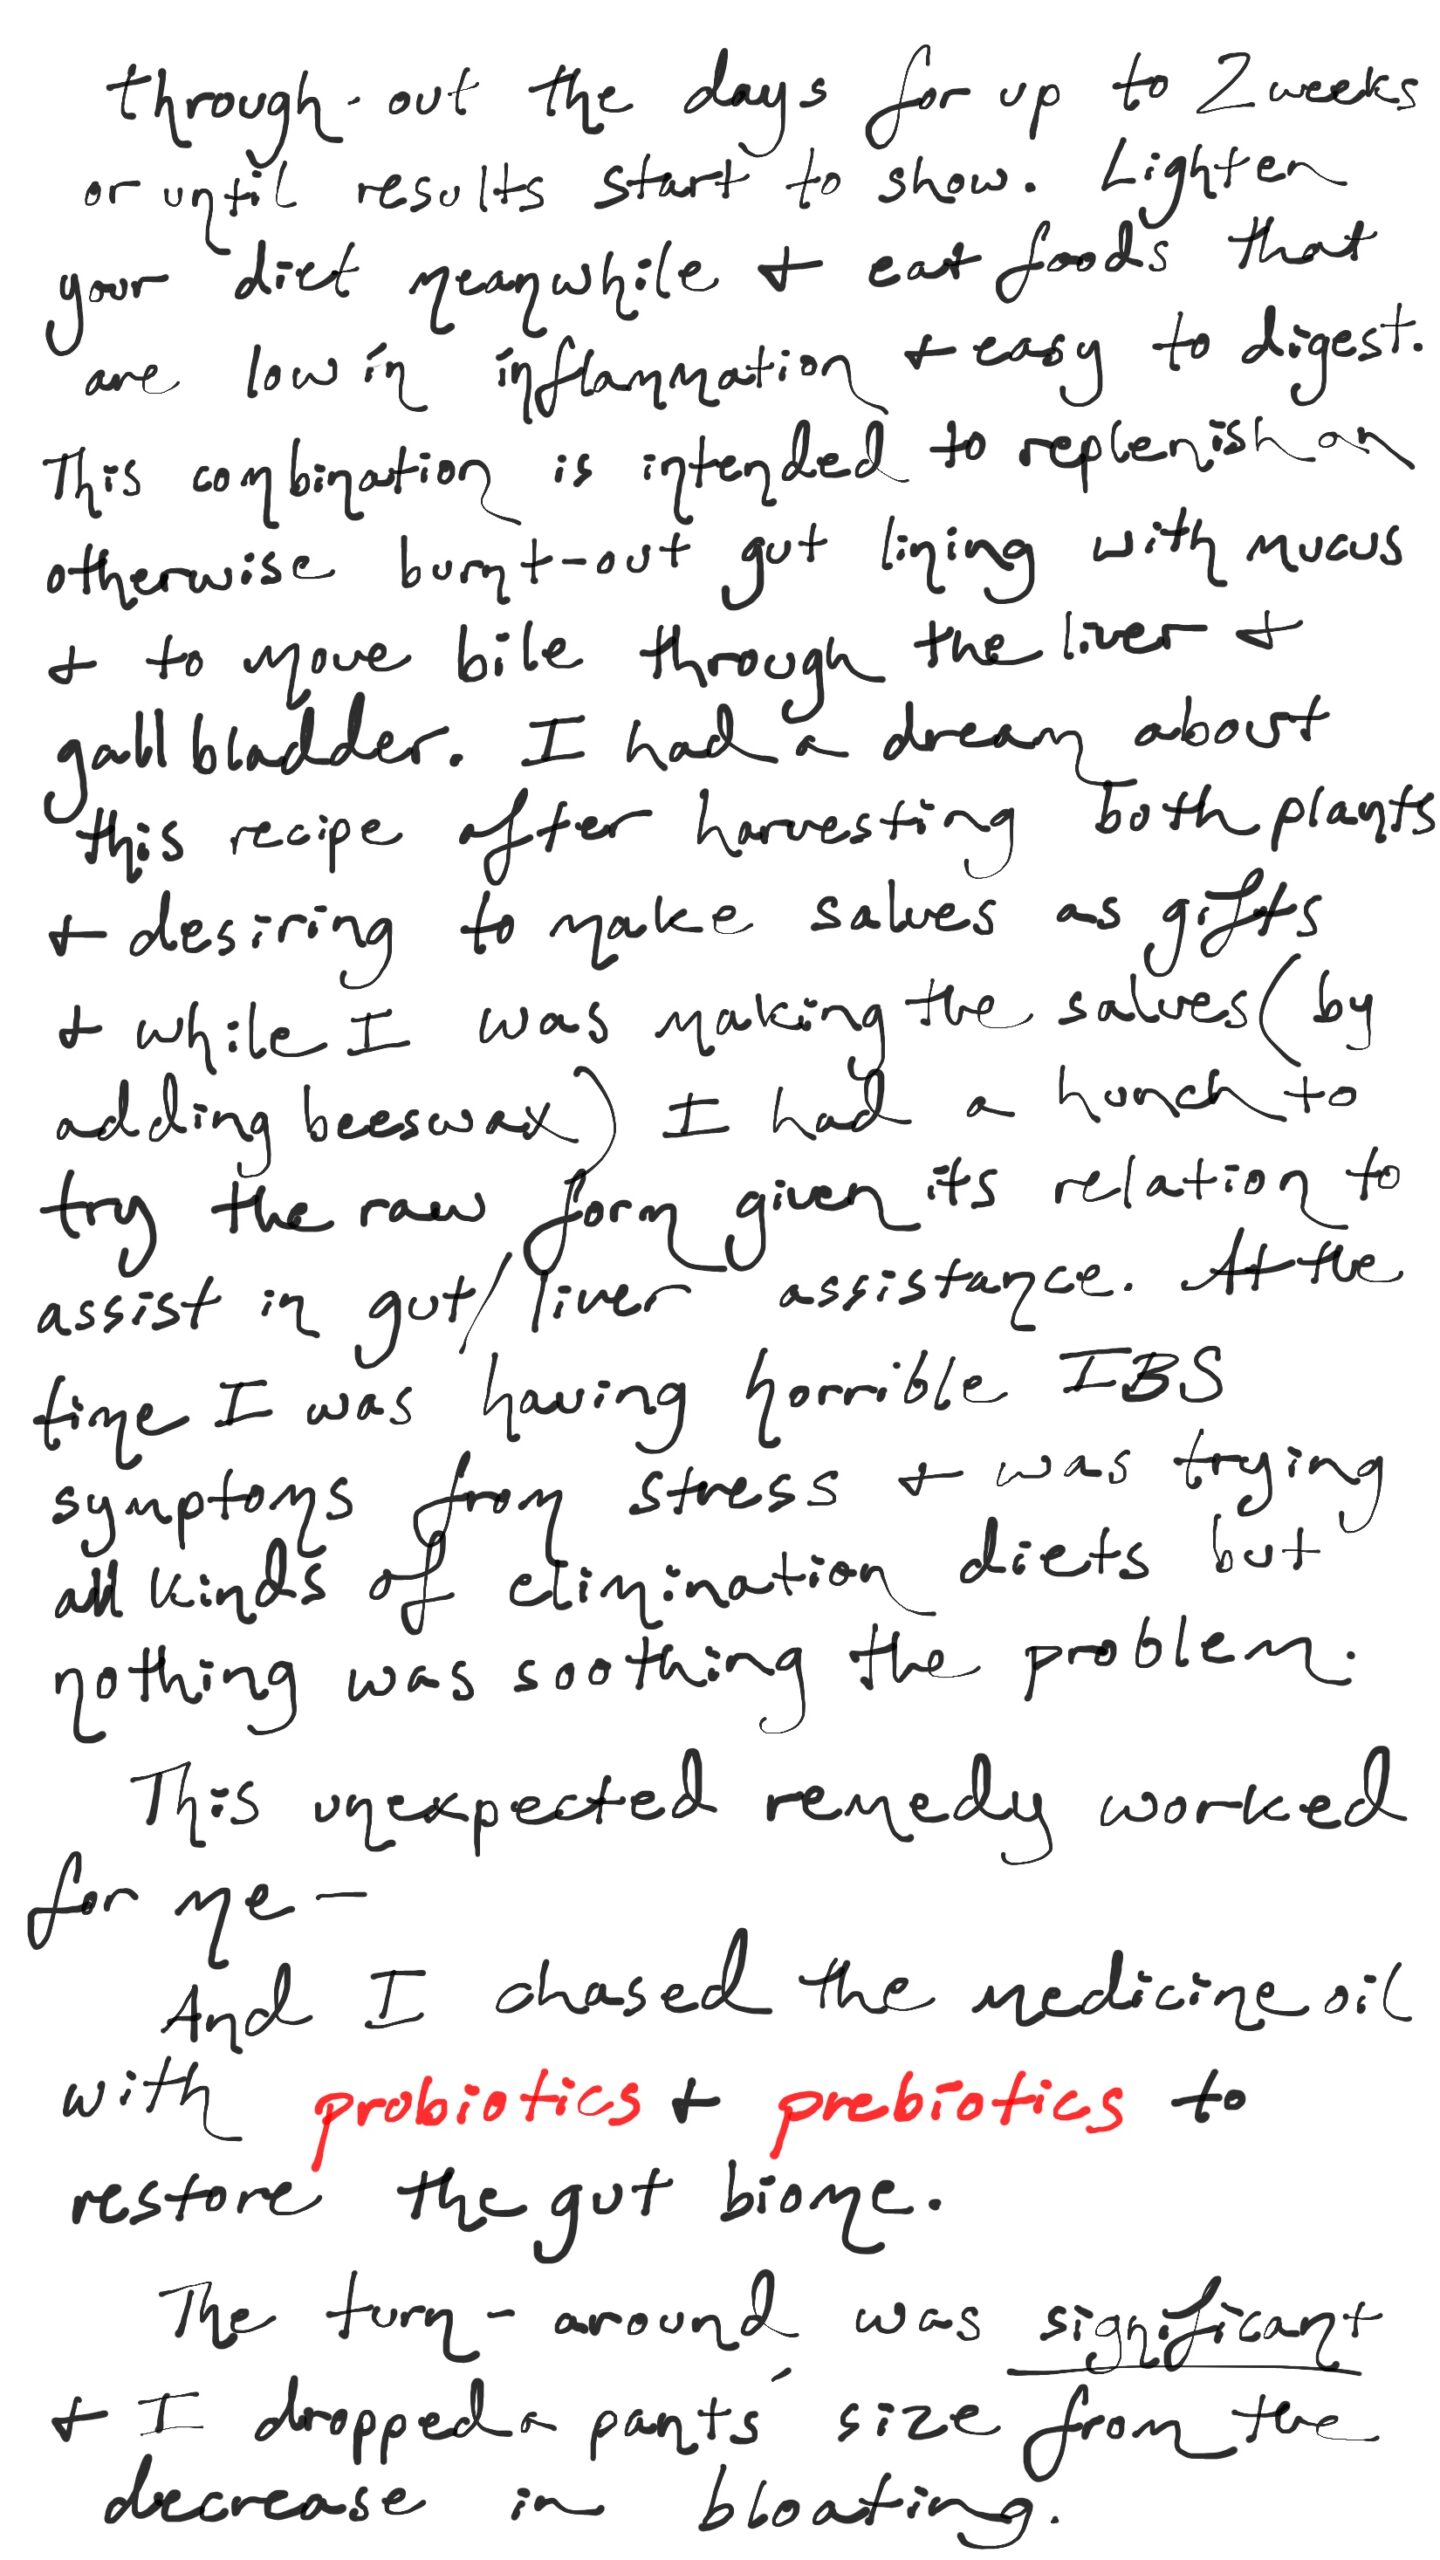 through-out the days for up to 2 weeks
or until results start to show. Lighten
your diet meanwhile + eat foods that
are low in inflammation + easy to digest.
This combination is intended to replenish an
otherwise burnt-out gut lining with mucus
+ to move bile through the liver +
gallbladder. I had a dream about
this recipe after harvesting both plants
+ desiring to make salves as gifts
+ while I was making the salves (by
adding beeswax) I had a hunch to
try the raw form given its relation to
assist in gut/liver assistance. At the
time I was having horrible IBS
symptoms from stress + was trying
all kinds of elimination diets but
nothing was soothing the problem.
This unexpected remedy worked
for me —
And I chased the medicine oil
with probiotics + prebiotics to
restore the gut biome.
The turn-around was significant
+ I dropped a pants' size from the
decrease in bloating.